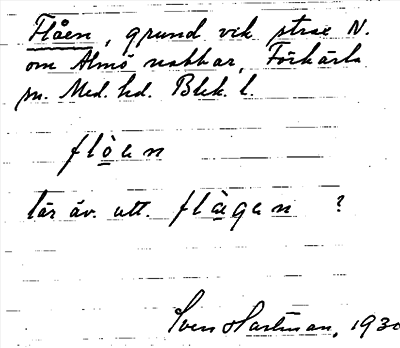 Flåen, grund vik strax N.
om Almö nabbar, Förkärla
sn. Med. hd. Blek. l.
flòan
lär äv. utt. flàgan ?
Sven Hartman, 1930